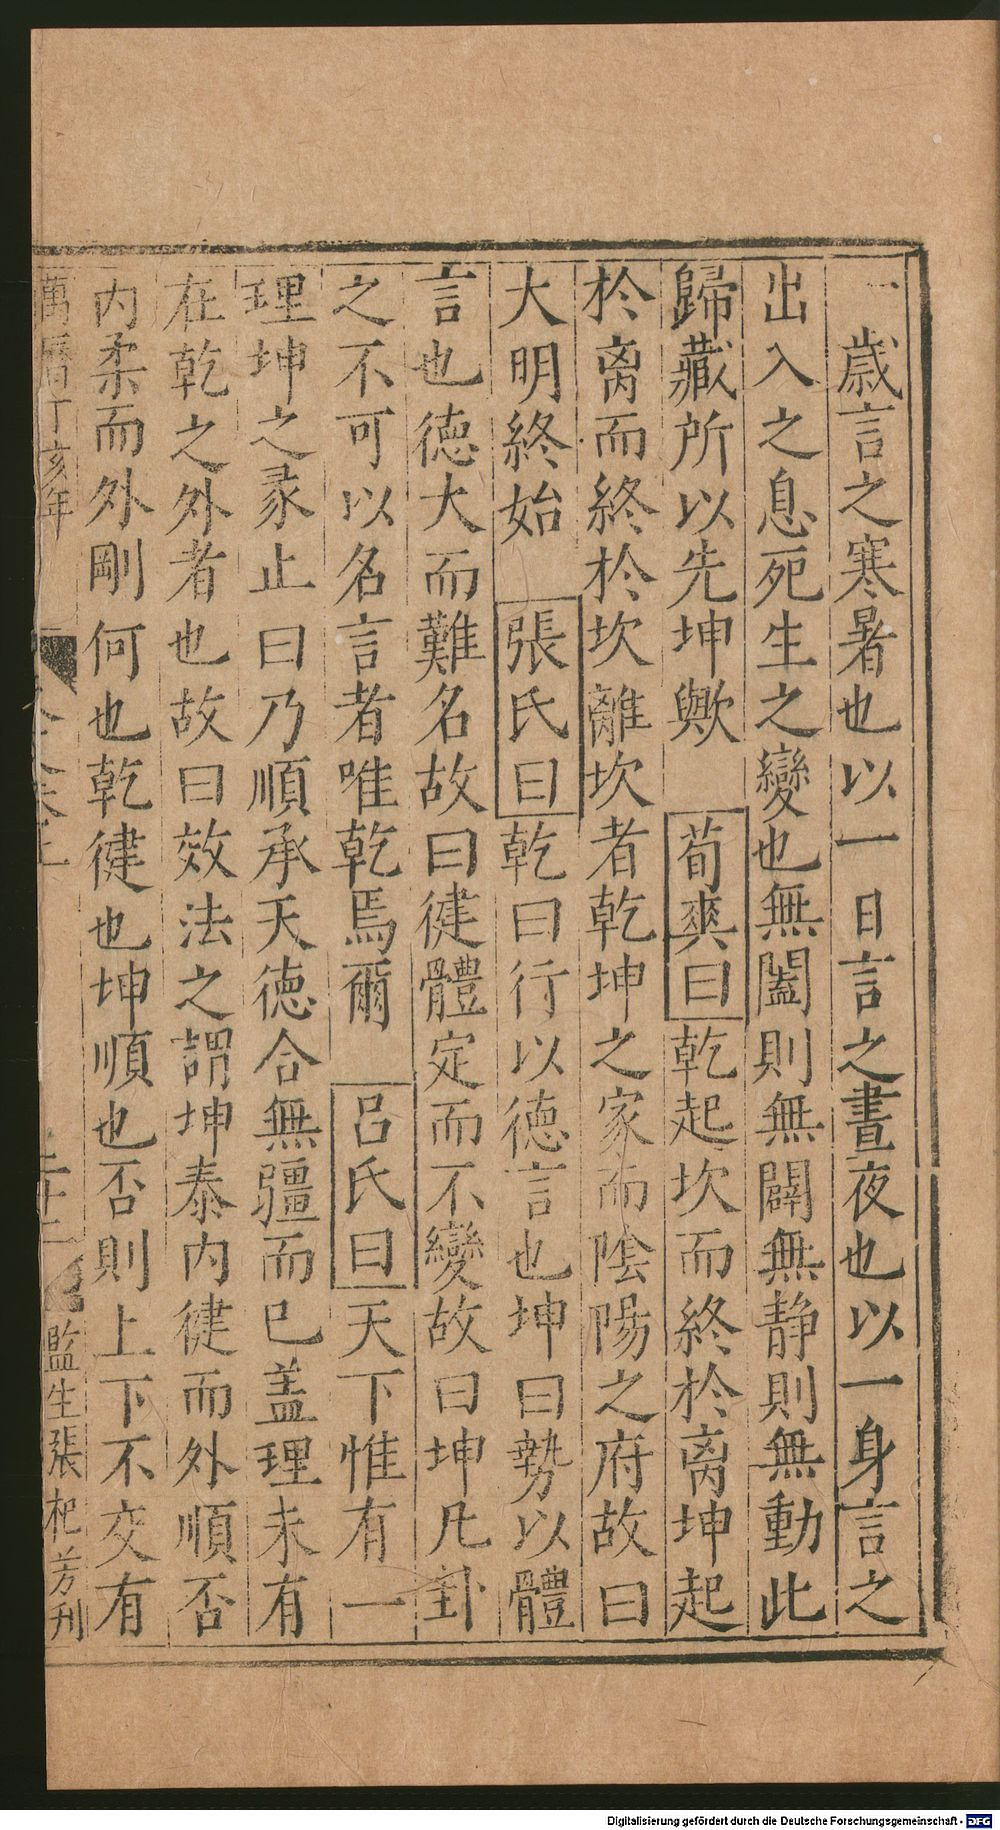 一歳言之寒暑也以一日言之晝夜也以一身言之
出入之息死生之變也無闔則無闢無静則無動此
歸藏所以先坤歟　荀爽曰乾起坎而終於离坤起
於离而終於坎離坎者乾坤之家而隂陽之府故曰
大明終始　張氏曰乾曰行以德言也坤曰勢以體
言也德大而難名故曰徤體定而不變故曰坤凡卦
之不可以名言者唯乾焉爾　吕氏曰天下惟有一
理坤之彖止曰乃順承天德合無疆而已盖理未有
在乾之外者也故曰效法之謂坤泰内徤而外順否
内柔而外剛何也乾徤也坤順也否則上下不交有
萬曆丁亥年
二十二
監生張杞芳刋
Digitalisierung gefördert durch die Deutsche Forschungsgemeinschaft - DFG